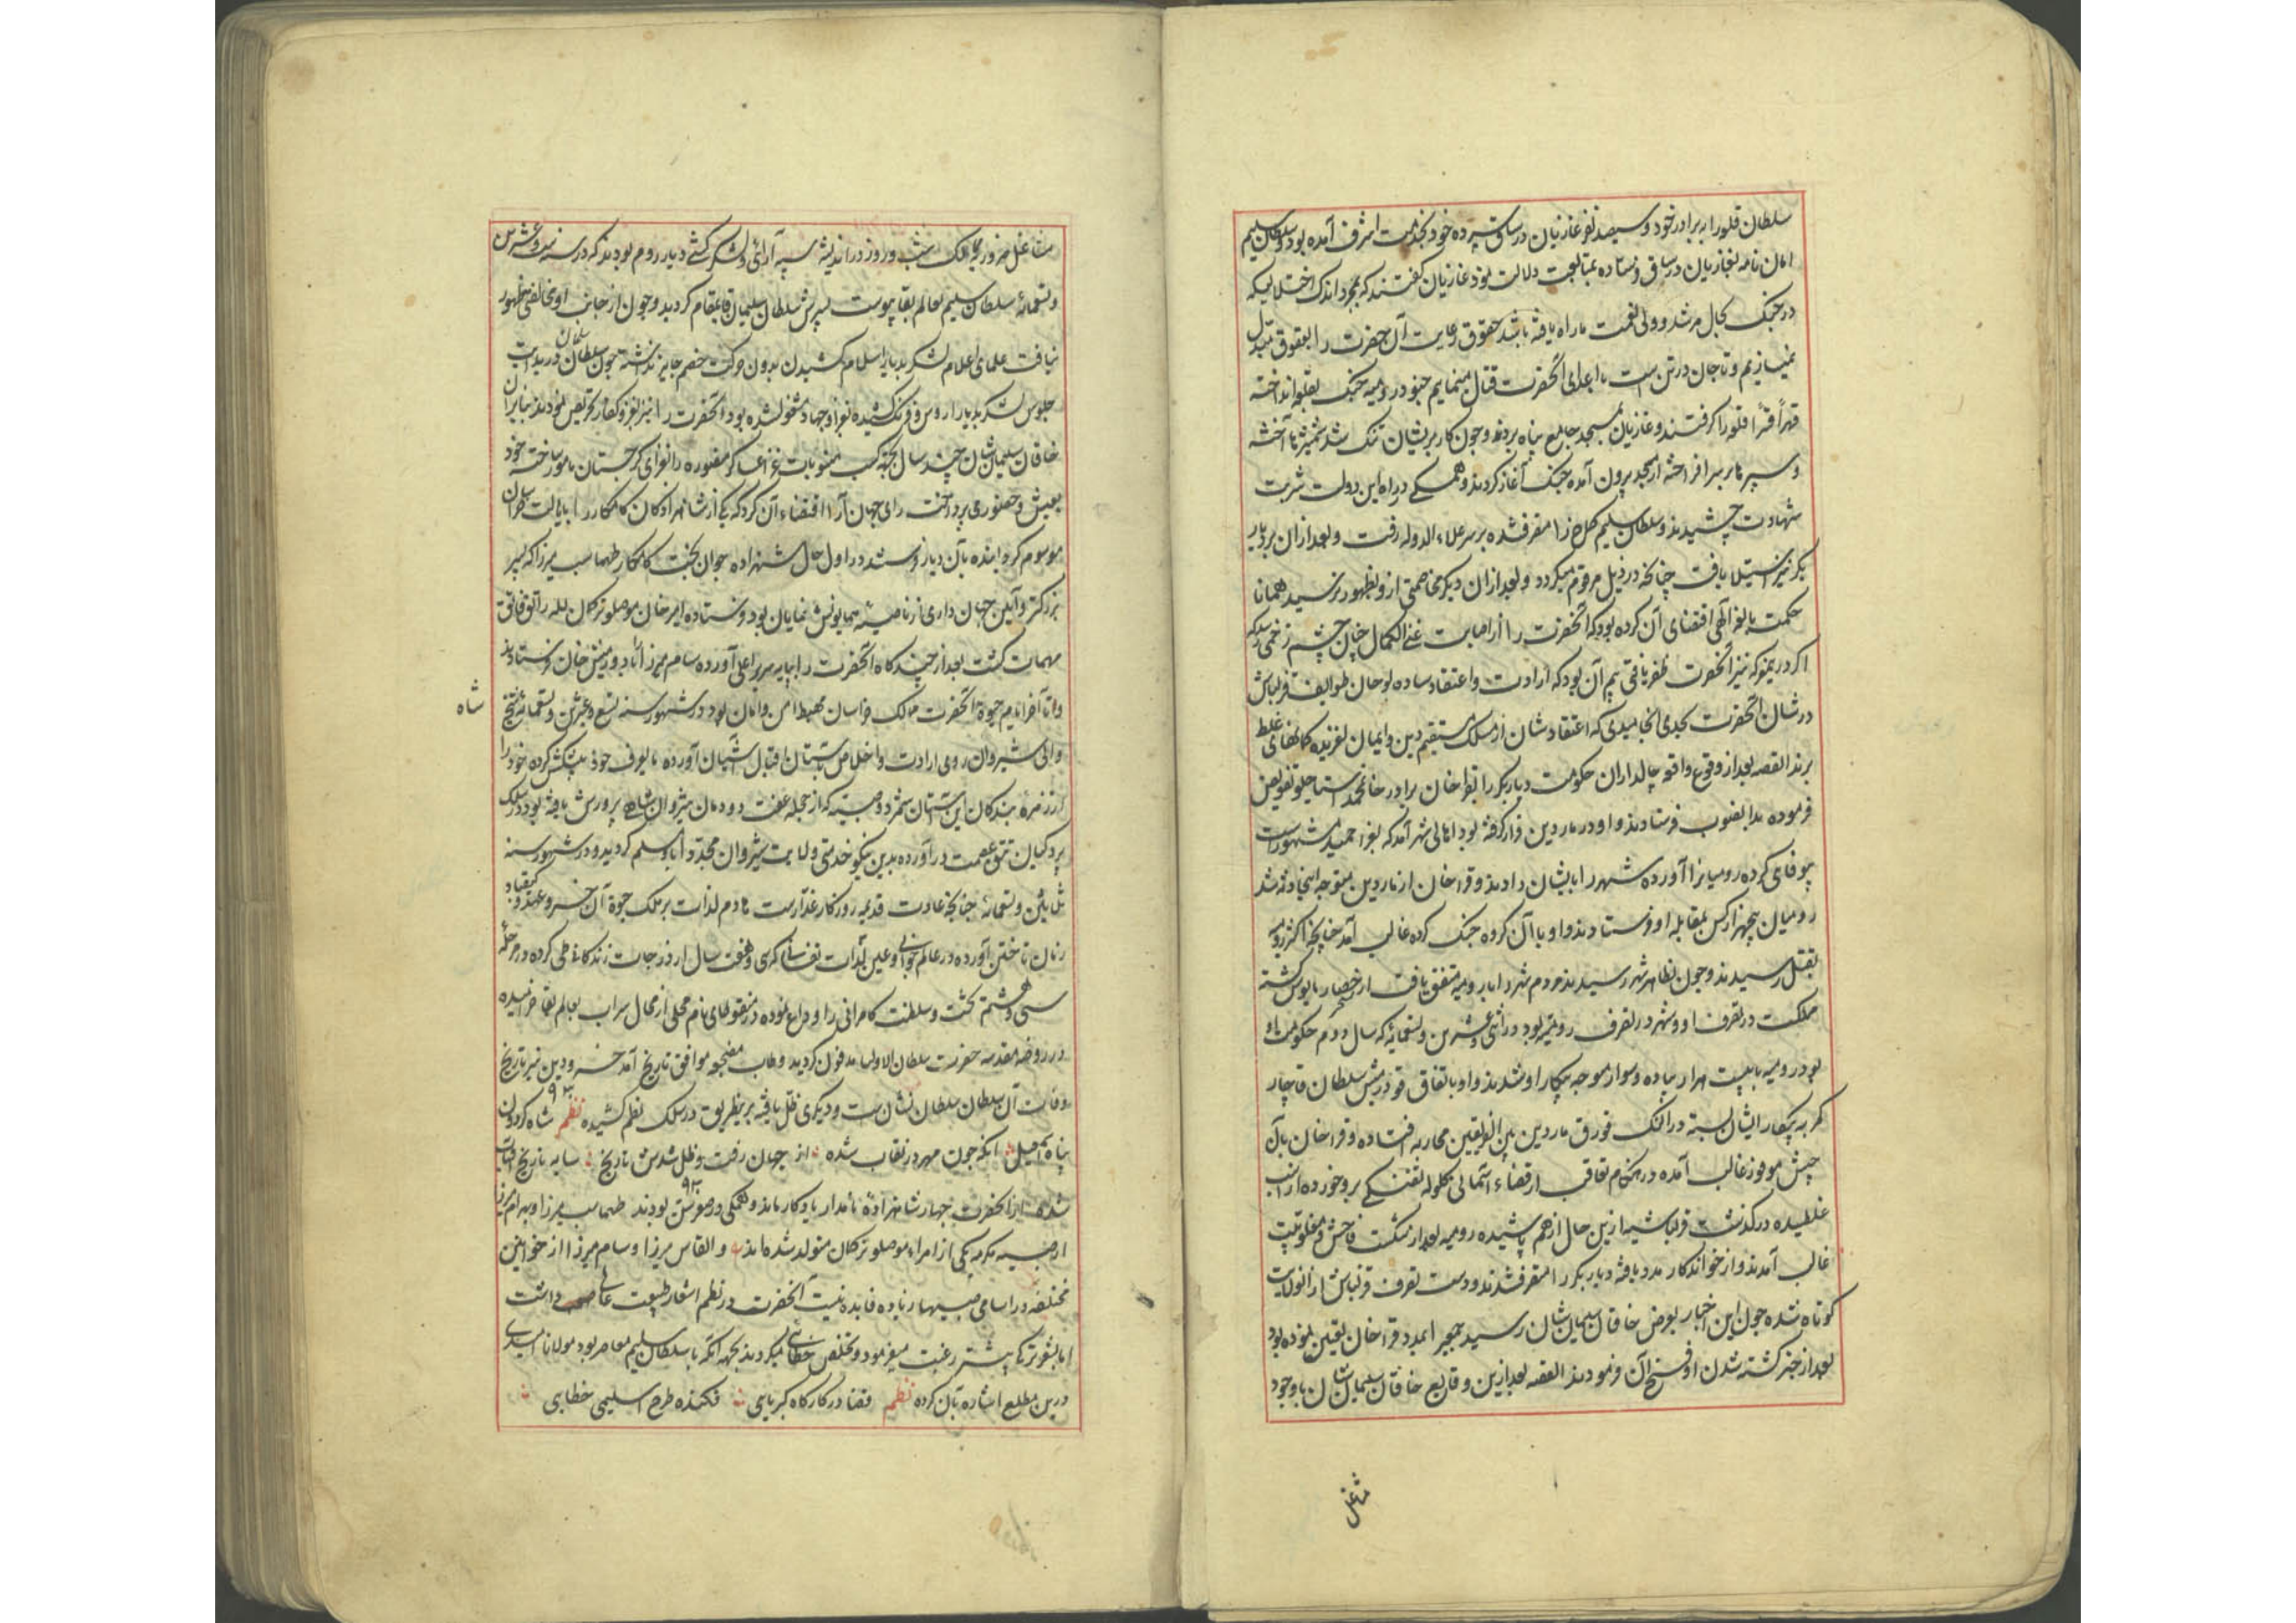 سلطان قلعه را ببرادر خود و سیصد نفر غازیان در ساق سپرده خود بخدمت اشرف آمده بود و سلطان سلیم
امان نامه بغازیان در ساق فرستاده بمتابعت دلالت نمود غازیان گفتند که بمجرد اندک اختلالی که
در جنگ بحال مرشد و ولی نعمت ما راه یافته باشد حقوق رعایت آن حضرت را بعقوق مبدل
نمیسازیم و تا جان در تن است با اعدای آنحضرت قتال مینمائیم جنود رومیه جنگ بقلعه انداخته
قهراً قسراً قلعه را گرفتند و غازیان بمسجد جامع پناه بردند و چون کار بریشان تنگ شد شمشیرها آخته
و سپرها بر سر افراخته از مسجد بیرون آمده جنگ آغاز کردند و همگی در راه این دولت شربت
شهادت چشیدند و سلطان سلیم کماخ را متصرف شده بر سر علاء الدوله رفت و بعد از آن بر دیار
بکر نیز استیلا یافت چنانچه در ذیل مرقوم میگردد و بعد از آن دیگر مخاصمتی ازو بظهور نرسید همانا
حکمت بالغه الهی اقتضای آن کرده بود که آنحضرت را از اصابت عین الکمال چنان چشم زخمی رسد که
اگر درین معرکه نیز آنحضرت ظفر یافتی بیم آن بود که ارادت و اعتقاد ساده لوحان طوایف قزلباش
در شان آنحضرت بحدی انجامیدی که اعتقادشان از مسلک مستقیم دین و ایمان لغزیده گمانهای غلط
برند القصه بعد از وقوع واقعه چالداران حکومت دیار بکر را بقرا خان برادر خان محمد استاجلو تفویض
فرموده بدانصوب فرستادند و او در ماردین قرار گرفته بود اهالی شهر آمد که بقرا حمید مشهور است
بیوفای کرده رومیانرا آورده شهر را بایشان دادند و قرا خان از ماردین متوجه اینجادثه شد
رومیان پنجهزار کس بمقابله او فرستادند و او با آن گروه جنگ کرده غالب آمد چنانچه اکثر رومیه
بقتل رسیدند و چون بظاهر شهر رسیدند مردم شهر را با رومیه متفق یافت از حصار مایوس گشته
مملکت در تصرف او و شهر در تصرف رومیه بود در اثنی عشرین و تسعمائه که سال دوم حکومت او
بود رومیه با بیست هزار پیاده و سوار متوجه پیکار او شدند و او باتفاق قودرمش سلطان قاچار
کمر به پیکار ایشان بسته در النک قورق ماردین بین الفریقین محاربه افتاده و قرا خان بآن
جیش موفور غالب آمده در هنگام تعاقب از قضاء آسمانی گلوله تفنگی برو خورده از اسب
غلطیده درگذشت قزلباشیه ازین حال از هم پاشیده رومیه بعد از شکست فاحش و مغلوبیت
غالب آمدند و از خواندکار مدد یافته دیار بکر را متصرف شدند و دست تصرف قزلباش از آنولایت
کوتاه شد چون این اخبار بعرض خاقان سلیمان شان رسید جمعی را بمدد قرا خان تعیین نموده بود
بعد از خبر کشته شدن او فسخ آن فرمودند القصه بعد ازین وقایع خاقان سلیمان شان با وجود
مشاغل
مشاغل مزبور ممالک شب و روز در اندیشه سپه آرائی و لشکرکشی دیار روم بودند که در سنه ست و عشرین
و تسعمائه سلطان سلیم بعالم بقا پیوست پسرش سلطان سلیمان قایمقام گردید و چون از جانب او مخالفتی بظهور
نیافت علمای اعلام لشکر بدیار اسلام کشیدن بدون حرکت خصم جایز نداشته چون سلطان سلیمان در بدایت
جلوس لشکر بدیار اروس و فرنک کشیده بغزا و جهاد مشغول شده بود آنحضرت را نیز بغزو کفار تحریص نمودند بنابران
خاقان سلیمان شان چند سال بجهة کسب مثوبات غزا عساکر منصوره را بغزای گرجستان مامور ساخته خود
بعیش و حضور می پرداخت رای جهان آرا اقتضاء آن کرد که یکی از شاهزادکان کامکار را بایالت خراسان
موسوم گردانیده بآن دیار فرستند در اول حال شهزاده جوان بخت کامکار طهماسب میرزا که پسر
بزرگتر و آئین جهان داری از ناصیه همایونش نمایان بود فرستاده امیر خان موصلو ترکمان لله راتق و فاتق
مهمات گشت بعد از چندگاه آنحضرت را بپایه سریر اعلی آورده سام میرزا را با دورمیش خان فرستادند
و تا آخر ایام حیوة آنحضرت ممالک خراسان مهبط امن و امان بود در شهور سنه تسع و عشرین و تسعمائه شیخ
شاه
والی شیروان روی ارادت و اخلاص بآستان اقبال آشیان آورده بالوف خود پیشکش کرده خود را
از زمره بندکان این آستان شمرد و صبیه که از جمله عفت دودمان شیروان شاهی پرورش یافته بود در سلک
پردگیان تتق عصمت درآورده بدین نیکو خدمتی ولایت شیروان مجدداً باو مسلم گردید و در شهور سنه
ثلثین و تسعمائه چنانچه عادت قدیمه روزگار غدارست هادم لذات بر ملک حیوة آن خسرو عهد و کیقباد
زمان تاختن آورده در عالم جوانی و عین لذات نفسانی که سی و هفت سال از درجات زندگانی طی کرده در مرحله
سی و هشتم تخت و سلطنت کامرانی را وداع نموده در منقوطای نام محلی از محال سراب بعالم بقا خرامیده
در روضه مقدسه حضرت سلطان الاولیا مدفون گردید و طاب مضجعه موافق تاریخ آمد خسرو دین نیز تاریخ
وفات آن سلطان سلطان نشان ست و دیگری ظل یافته برینطریق در سلک نظم کشیده نظم شاه گردون
۹۳۰
پناه اسمعیل آنکه چون مهر در نقاب شده از جهان رفت و ظل شدش تاریخ سایه تاریخ آفتاب
شده از آنحضرت چهار شاهزاده نامدار یادگار ماند و همگی در صغر سن بودند طهماسب میرزا و بهرام میرزا
۹۳۰
از صبیه مکرمه یکی از امراء موصلو ترکمان متولد شده اند و القاس میرزا و سام میرزا از خواتین
مختلفه در اسامی صبیها زیاده فایده نیست آنحضرت در نظم اشعار طبیعت عالی داشت
اما بشعر ترکی بیشتر رغبت میفرمود و تخلص خطائی میکردند بجهة آنکه با سلطان سلیم معاصر بود مولانا امیدی
درین مطلع اشاره بآن کرده نظم قضا در کارگاه کبریایی فکنده طرح اسلیمی خطایی